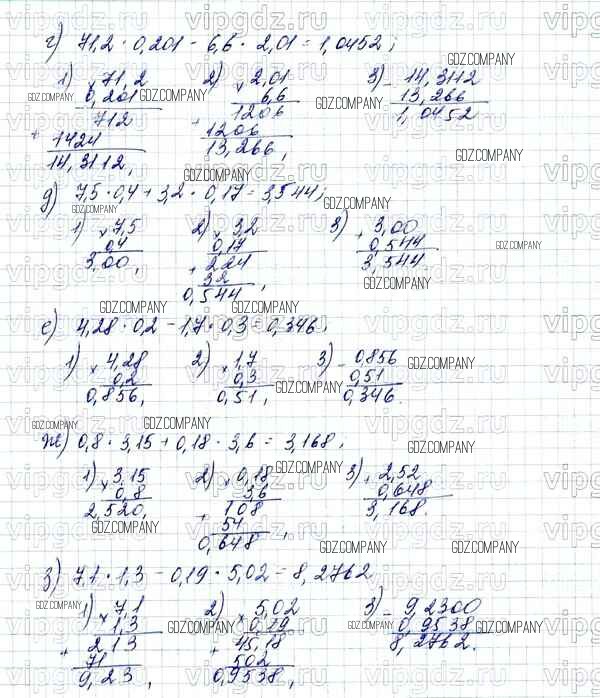 г) 71,2 · 0,201 - 6,6 · 2,01 = 1,0452;
1) × 71,2
0,201
712
+ 1424
14,3112,
2) × 2,01
6,6
1206
+ 1206
13,266,
3) - 14,3112
13,266
1,0452
д) 7,5 · 0,4 + 3,2 · 0,17 = 3,544;
1) × 7,5
0,4
3,00,
2) × 3,2
0,17
+ 224
32
0,544,
3) + 3,00
0,544
3,544.
е) 4,28 · 0,2 - 1,7 · 0,3 = 0,346,
1) × 4,28
0,2
0,856,
2) × 1,7
0,3
0,51,
3) - 0,856
0,51
0,346.
ж) 0,8 · 3,15 + 0,18 · 3,6 = 3,168,
1) × 3,15
0,8
2,520,
2) × 0,18
3,6
+ 108
54
0,648,
3) + 2,52
0,648
3,168.
з) 7,1 · 1,3 - 0,19 · 5,02 = 8,2762
1) × 7,1
1,3
+ 213
71
9,23,
2) × 5,02
0,19
+ 45,18
502
0,9538,
3) - 9,2300
0,9538
8,2762.
vipgdz.ru
GDZ.COMPANY